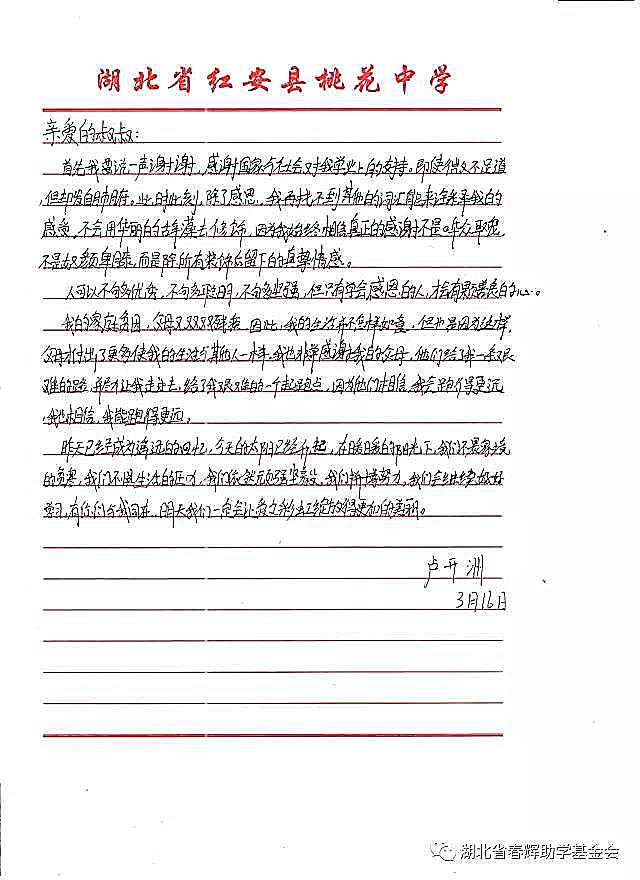 湖北省红安县桃花中学
亲爱的叔叔:
首先我要说一声谢谢,感谢国家和社会对我学业上的支持。即使微不足道
但却发自肺腑。此时此刻,除了感恩,我再找不到其他的词汇能来诠释我的
感受,不会用华丽的辞藻去修饰,因为我始终相信真正的感谢不是哗众取宠,
不是奴颜卑膝,而是除所有装饰后留下的真挚情感。
人可以不够优秀,不够聪明,不够坚强,但只有学会感恩的人,才会有美的心。
我的家庭贫困,父母双双残疾,因此,我的生活并不怎样如意,但也是因为这样,
父母才付出了更多使我的生活与其他人一样。我也非常感谢我的父母,他们给了我一条艰
难的路,并让我走过去,给了我艰难的一个起跑点,因为他们相信,我会跑得更远,
我也相信,我能跑得更远。
昨天已经成为遥远的回忆,今天的太阳已经升起,在暖暖的阳光下,我们不畏家庭
的贫寒,我们不畏生活的压力,我们依然顽强坚毅,我们拼搏努力,我们会继续好好
学习,有你们与我同在,明天我们一定会让彩虹绽放得更加的美丽。
卢开洲
3月16日
湖北省春辉助学基金会